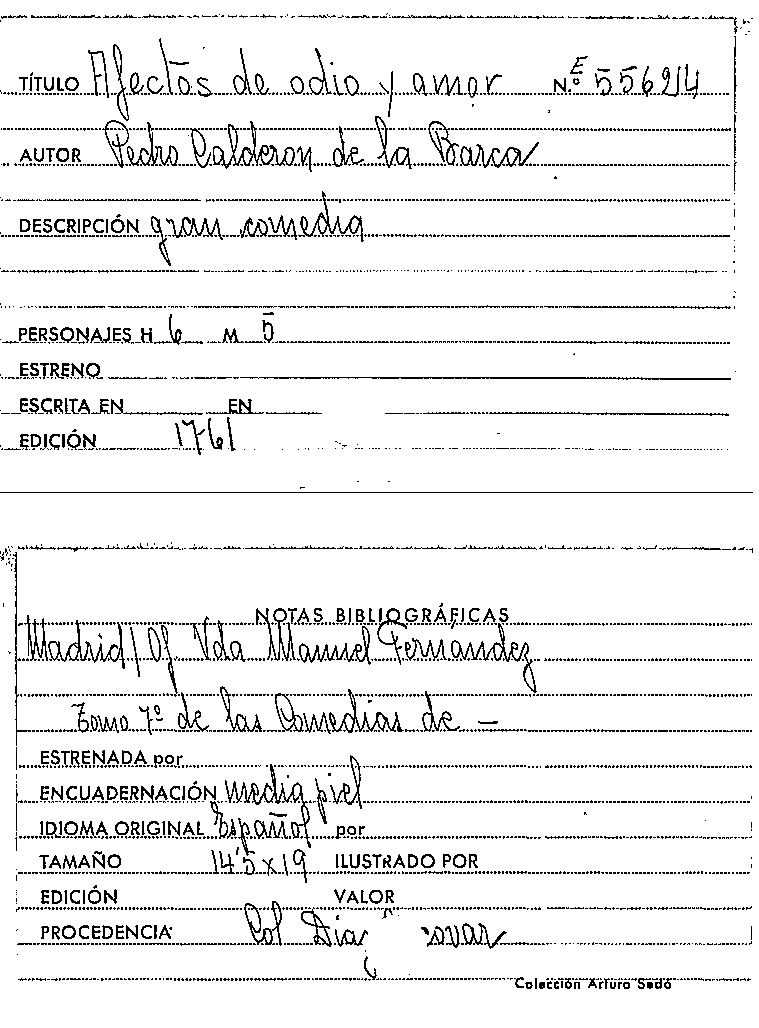 TÍTULO Afectos de odio y amor N.º E 55692/4
AUTOR Pedro Calderon de la Barca
DESCRIPCIÓN gran comedia
PERSONAJES H 6 M 5
ESTRENO
ESCRITA EN EN
EDICIÓN 1761
NOTAS BIBLIOGRÁFICAS
Madrid / Of Vda Manuel Fernández
Tomo 7º de las Comedias de —
ESTRENADA por
ENCUADERNACIÓN media piel
IDIOMA ORIGINAL Español por
TAMAÑO 14'5 x 19 ILUSTRADO POR
EDICIÓN VALOR
PROCEDENCIA Col
Colección Arturo Sedó